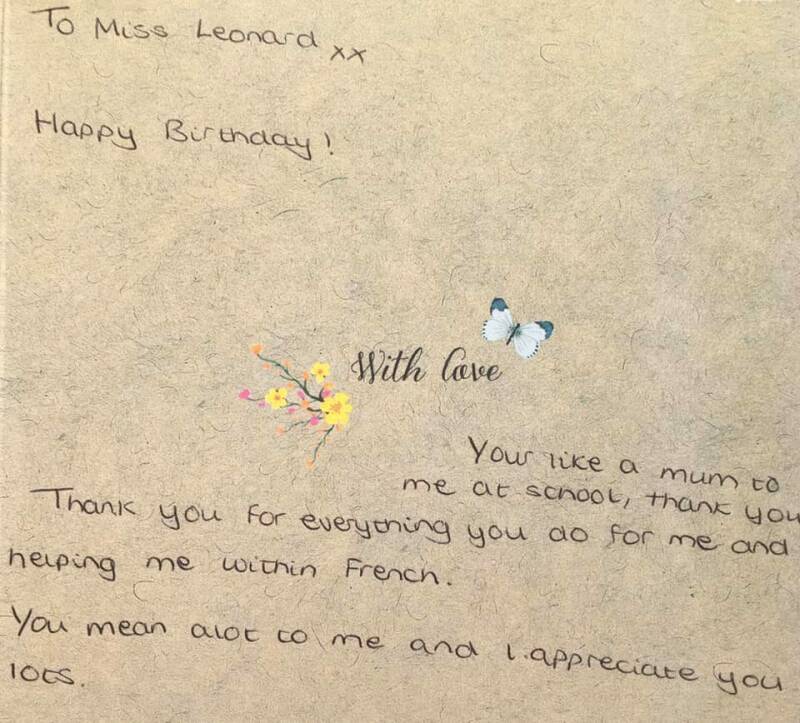 To Miss Leonard xx
Happy Birthday!
With love
Your like a mum to
me at school, thank you
Thank you for everything you do for me and
helping me within French.
You mean alot to me and I appreciate you
lots.